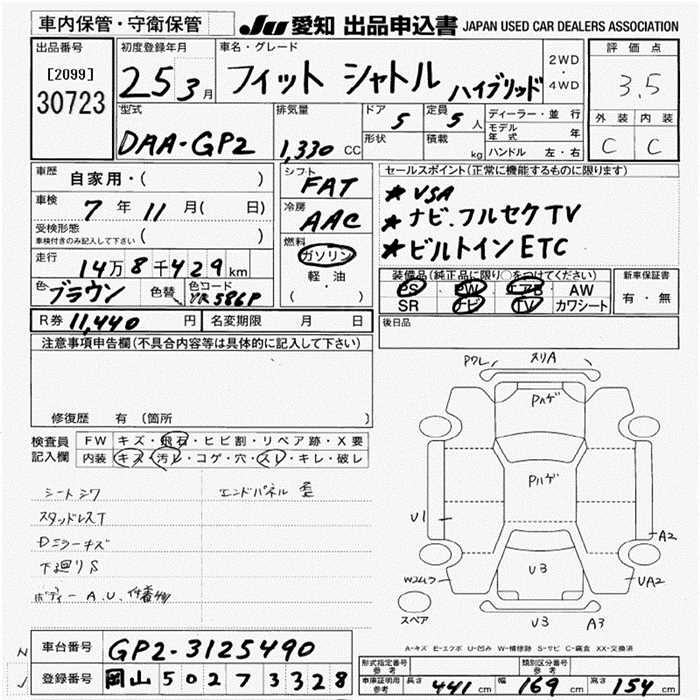 車内保管・守衛保管
JU 愛知 出品申込書 JAPAN USED CAR DEALERS ASSOCIATION
出品番号
[2099]
30723
初度登録年月
25 3月
車名・グレード
フィット シャトル ハイブリッド
2WD
・
4WD
評価点
3.5
外装 内装
C C
型式
DAA-GP2
排気量
1,330 CC
ドア
5
形状
定員
5人
積載
kg
ディーラー・並行
モデル年式 年
ハンドル 左・右
車歴
自家用・( )
車検
7年 11月( 日)
受検形態
車検付きのみ記入して下さい ( )
走行
14万8千429km
色
ブラウン
色替
色コード
YR586P
シフト
FAT
冷房
AAC
燃料
ガソリン
軽・油
( )
セールスポイント(正常に機能するものに限ります)
★ VSA
★ ナビ.フルセグTV
★ ビルトインETC
装備品(純正品に限り○をつけてください)
PS PW エアB AW
SR ナビ TV カワシート
新車保証書
有・無
R券 11,440 円
名変期限 月 日
後日品
注意事項申告欄(不具合内容等は具体的に記入して下さい)
修復歴 有 (箇所 )
検査員
記入欄
FW キズ・飛石・ヒビ割・リペア跡・X要
内装 キズ・汚レ・コゲ・穴・スレ・キレ・破レ
シートシワ
エンドパネル 歪
スタッドレスT
Dミラーキズ
下廻りS
ボディーA.U.
Pワレ
メリA
Pハゲ
Pハゲ
U1
A2
U3
Wコムラ
UA2
スペア
U3 A3
A-キズ E-エクボ U-凹み W-補修跡 S-サビ C-腐食 XX-交換済
N
J
車台番号
GP2-3125490
登録番号
岡山 502 73328
形式指定番号
参考
類別区分番号
参考
車庫証明用
参考
長さ 441 cm 幅 169 cm 高さ 154 cm